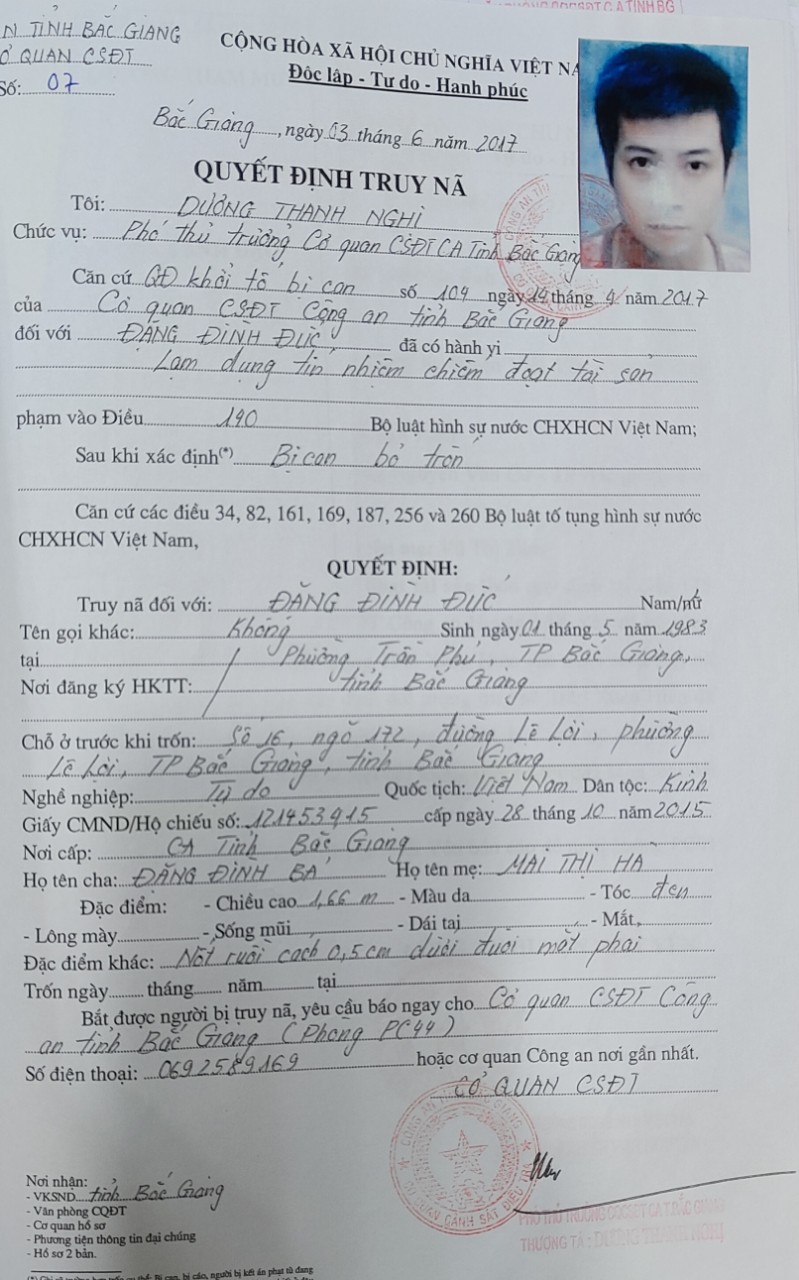 TỈNH BẮC GIANG
CƠ QUAN CSĐT
Số: 07
CỘNG HÒA XÃ HỘI CHỦ NGHĨA VIỆT NA
Độc lập - Tự do - Hạnh phúc
Bắc Giang, ngày 03 tháng 6 năm 2017
QUYẾT ĐỊNH TRUY NÃ
Tôi: DƯƠNG THANH NGHỊ
Chức vụ: Phó thủ trưởng Cơ quan CSĐT CA Tỉnh Bắc Giang
Căn cứ QĐ khởi tố bị can số 104 ngày 14 tháng 4 năm 2017
của Cơ quan CSĐT Công an tỉnh Bắc Giang
đối với ĐẶNG ĐÌNH ĐỨC đã có hành vi
Lạm dụng tín nhiệm chiếm đoạt tài sản
phạm vào Điều 140 Bộ luật hình sự nước CHXHCN Việt Nam;
Sau khi xác định(*) Bị can bỏ trốn
Căn cứ các điều 34, 82, 161, 169, 187, 256 và 260 Bộ luật tố tụng hình sự nước
CHXHCN Việt Nam,
QUYẾT ĐỊNH:
Truy nã đối với: ĐẶNG ĐÌNH ĐỨC Nam/nữ
Tên gọi khác: Không Sinh ngày 01 tháng 5 năm 1983
tại Phường Trần Phú, TP Bắc Giang,
Nơi đăng ký HKTT: tỉnh Bắc Giang
Chỗ ở trước khi trốn: Số 16, ngõ 172, đường Lê Lợi, phường
Lê Lợi, TP Bắc Giang, tỉnh Bắc Giang
Nghề nghiệp: Tự do Quốc tịch: Việt Nam Dân tộc: Kinh
Giấy CMND/Hộ chiếu số: 121453915 cấp ngày 28 tháng 10 năm 2015
Nơi cấp: CA Tỉnh Bắc Giang
Họ tên cha: ĐẶNG ĐÌNH BA Họ tên mẹ: MAI THỊ HA
Đặc điểm: - Chiều cao 1,66 m - Màu da - Tóc đen
- Lông mày - Sống mũi - Dái tai - Mắt
Đặc điểm khác: Nốt ruồi cách 0,5cm dưới đuôi mắt phải
Trốn ngày tháng năm tại
Bắt được người bị truy nã, yêu cầu báo ngay cho Cơ quan CSĐT Công
an tỉnh Bắc Giang (Phòng PC44)
Số điện thoại: 0692589169 hoặc cơ quan Công an nơi gần nhất.
CƠ QUAN CSĐT
PHÓ THỦ TRƯỞNG CQCSĐT CA T.BẮC GIANG
THƯỢNG TÁ: DƯƠNG THANH NGHỊ
Nơi nhận:
- VKSND tỉnh Bắc Giang
- Văn phòng CQĐT
- Cơ quan hồ sơ
- Phương tiện thông tin đại chúng
- Hồ sơ 2 bản.